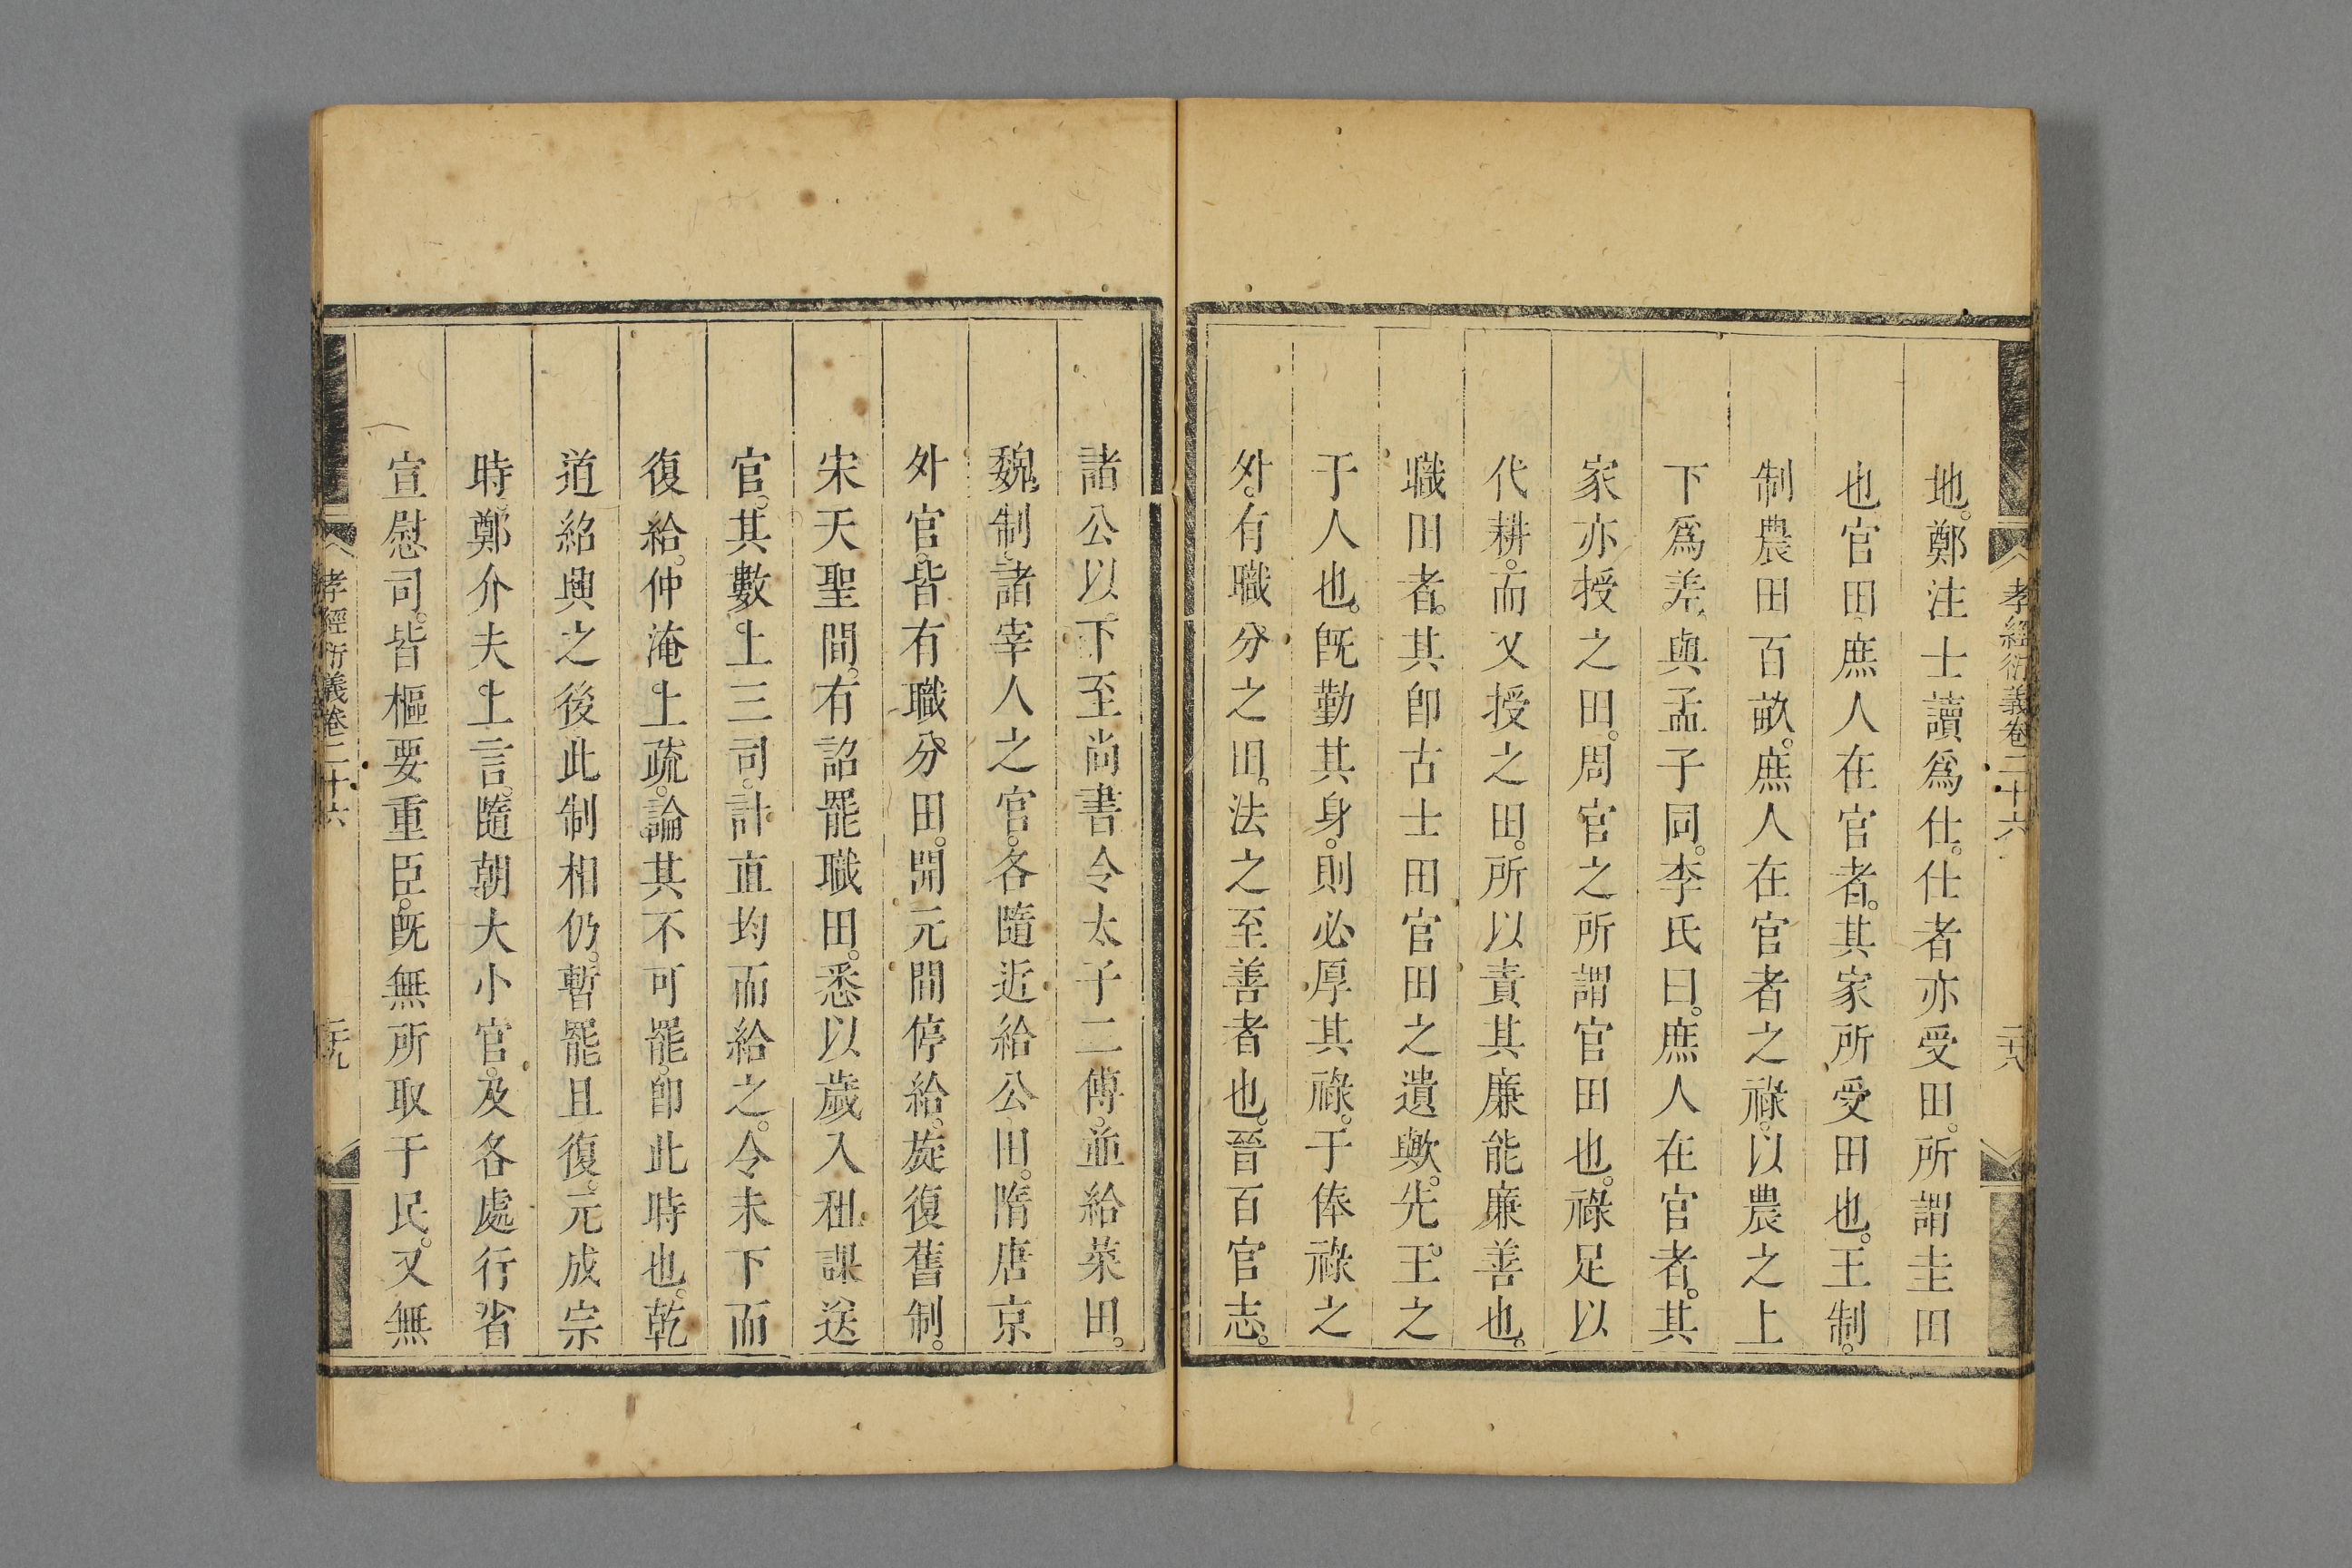 孝經衍義卷二十六
地。鄭注士讀爲仕。仕者亦受田。所謂圭田
也官田庶人在官者。其家所受田也。王制。
制農田百畝。庶人在官者之祿。以農之上
下爲差。與孟子同。李氏曰。庶人在官者。其
家亦授之田。周官之所謂官田也。祿足以
代耕。而又授之田。所以責其廉能廉善也。
職田者。其卽古士田官田之遺歟。先王之
于人也。旣勤其身。則必厚其祿。于俸祿之
外。有職分之田。法之至善者也。晉百官志。
諸公以下至尚書令太子二傅。並給菜田。
魏制。諸宰人之官。各隨近給公田。隋唐京
外官。皆有職分田。開元間停給。旋復舊制。
宋天聖間。有詔罷職田。悉以歲入租課送
官。其數上三司。計直均而給之。令未下而
復給。仲淹上疏。論其不可罷。卽此時也。乾
道紹興之後此制相仍。暫罷且復。元成宗
時。鄭介夫上言。隨朝大小官。及各處行省
宣慰司。皆樞要重臣。旣無所取于民。又無
孝經衍義卷二十六